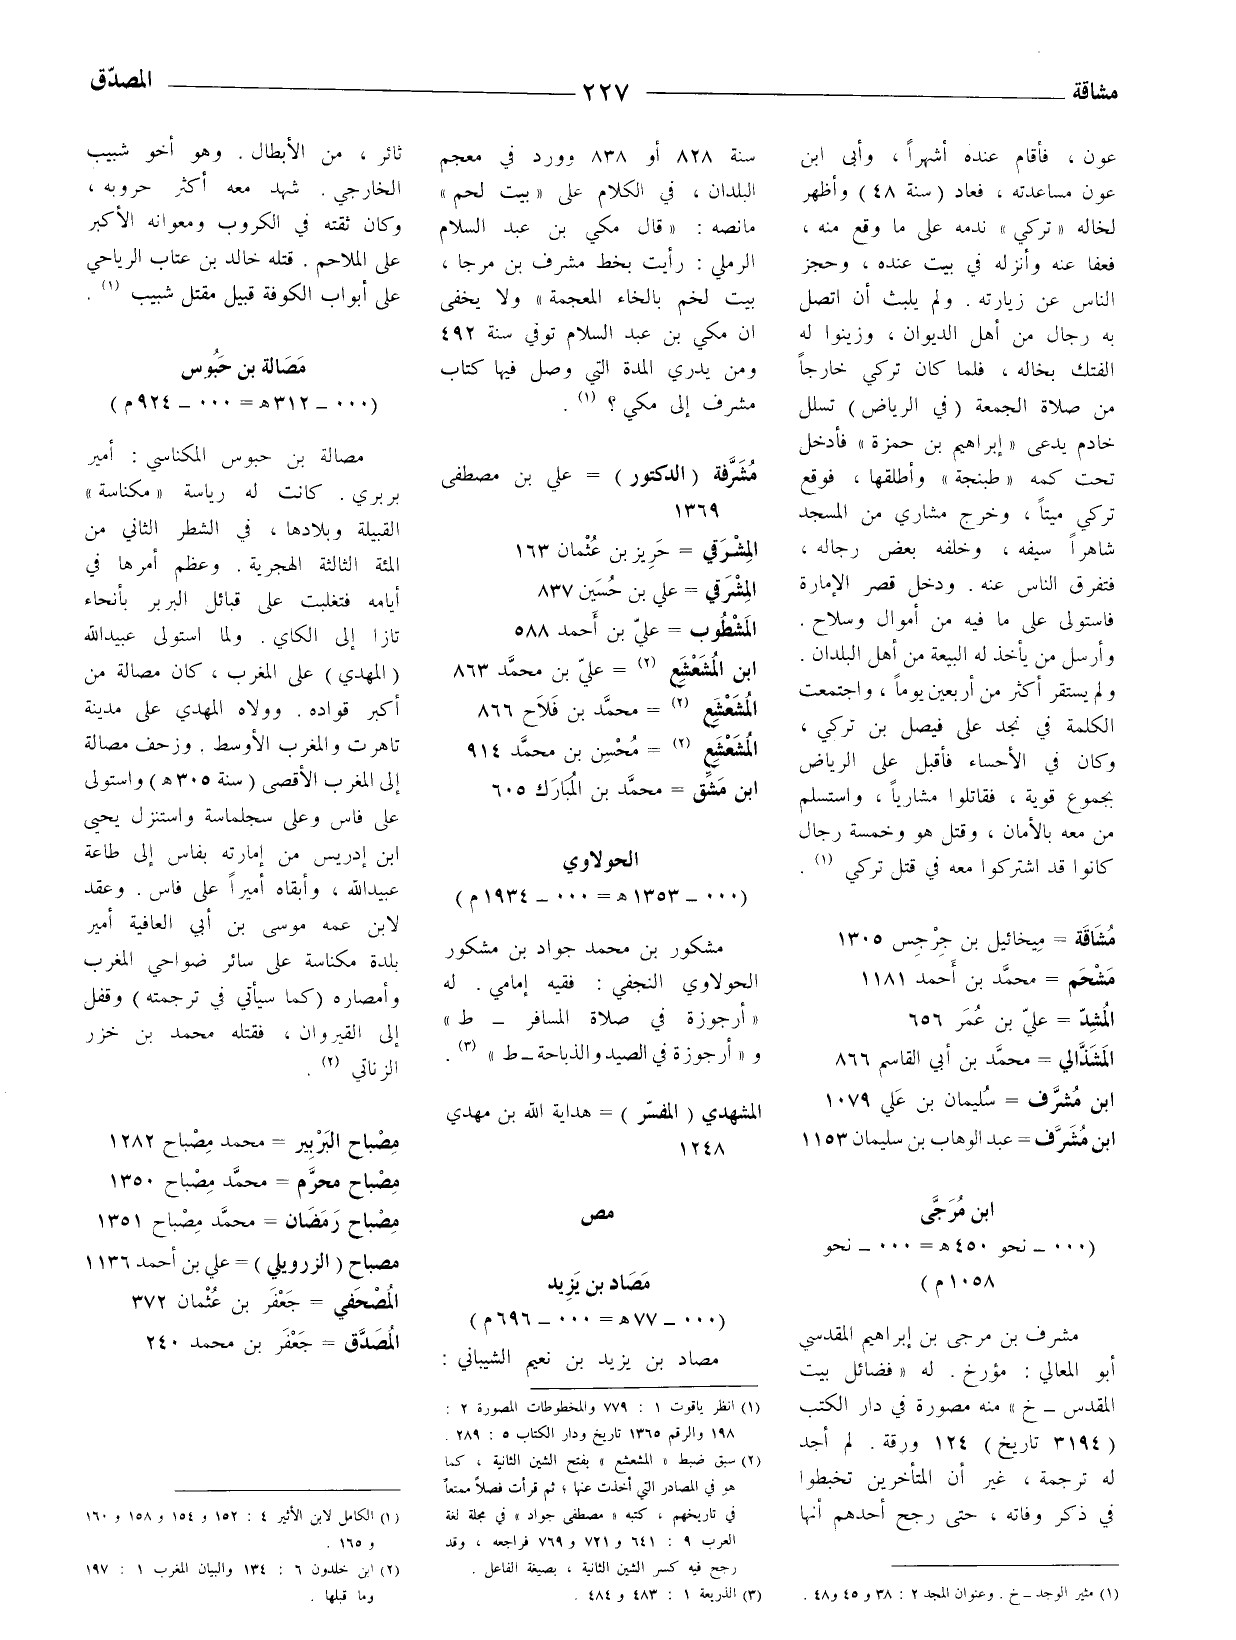 مشاقة
٢٢٧
المصدّق
عون ، فأقام عنده أشهراً ، وأبى ابن
عون مساعدته ، فعاد ( سنة ٤٨ ) وأظهر
لخاله « تركي » ندمه على ما وقع منه ،
فعفا عنه وأنزله في بيت عنده ، وحجز
الناس عن زيارته . ولم يلبث أن اتصل
به رجال من أهل الديوان ، وزينوا له
الفتك بخاله ، فلما كان تركي خارجاً
من صلاة الجمعة ( في الرياض ) تسلل
خادم يدعى « إبراهيم بن حمزة » فأدخل
تحت كمه « طبنجة » وأطلقها ، فوقع
تركي ميتاً ، وخرج مشاري من المسجد
شاهراً سيفه ، وخلفه بعض رجاله ،
فتفرق الناس عنه . ودخل قصر الإمارة
فاستولى على ما فيه من أموال وسلاح .
وأرسل من يأخذ له البيعة من أهل البلدان .
ولم يستقر أكثر من أربعين يوماً ، واجتمعت
الكلمة في نجد على فيصل بن تركي ،
وكان في الأحساء فأقبل على الرياض
بجموع قوية ، فقاتلوا مشارياً ، واستسلم
من معه بالأمان ، وقتل هو وخمسة رجال
كانوا قد اشتركوا معه في قتل تركي (١) .
مُشَاقَة = مِيخائيل بن جِرْجِس ١٣٠٥
مَشْحَم = محمَّد بن أَحمد ١١٨١
المُشِدّ = عليّ بن عُمَر ٦٥٦
المَشَذَّالي = محمَّد بن أبي القاسم ٨٦٦
ابن مُشرَّف = سُليمان بن عَلي ١٠٧٩
ابن مُشَرَّف = عبد الوهاب بن سليمان ١١٥٣
ابن مُرَجَّى
( ٠٠٠ – نحو ٤٥٠ ه = ٠٠٠ – نحو
١٠٥٨ م )
مشرف بن مرجى بن إبراهيم المقدسي
أبو المعالي : مؤرخ . له « فضائل بيت
المقدس – خ » منه مصورة في دار الكتب
( ٣١٩٤ تاريخ ) ١٢٤ ورقة . لم أجد
له ترجمة ، غير أن المتأخرين تخبطوا
في ذكر وفاته ، حتى رجح أحدهم أنها
(١) مثير الوجد – خ . وعنوان المجد ٢ : ٣٨ و ٤٥ و٤٨ .
سنة ٨٢٨ أو ٨٣٨ وورد في معجم
البلدان ، في الكلام على « بيت لحم »
مانصه : « قال مكي بن عبد السلام
الرملي : رأيت بخط مشرف بن مرجا ،
بيت لخم بالخاء المعجمة » ولا يخفى
ان مكي بن عبد السلام توفي سنة ٤٩٢
ومن يدري المدة التي وصل فيها كتاب
مشرف إلى مكي ؟ (١) .
مُشَرَّفة ( الدكتور ) = علي بن مصطفى
١٣٦٩
المِشْرَقي = حَرِيز بن عُثْمان ١٦٣
المِشْرَقي = علي بن حُسَين ٨٣٧
المَشْطُوب = عليّ بن أَحمد ٥٨٨
ابن المُشَعْشَع (٢) = عليّ بن محمَّد ٨٦٣
المُشَعْشَع (٢) = محمَّد بن فَلَاح ٨٦٦
المُشَعْشَع (٢) = مُحْسِن بن محمَّد ٩١٤
ابن مَشِّق = محمَّد بن المُبَارَك ٦٠٥
الحولاوي
( ٠٠٠ – ١٣٥٣ ه = ٠٠٠ – ١٩٣٤ م )
مشكور بن محمد جواد بن مشكور
الحولاوي النجفي : فقيه إمامي . له
« أرجوزة في صلاة المسافر – ط »
و « أرجوزة في الصيد والذباحة – ط » (٣) .
المشهدي ( المفسّر ) = هداية الله بن مهدي
١٢٤٨
مص
مَصَاد بن يَزِيد
( ٠٠٠ – ٧٧ ه = ٠٠٠ – ٦٩٦ م )
مصاد بن يزيد بن نعيم الشيباني :
(١) انظر ياقوت ١ : ٧٧٩ والمخطوطات المصورة ٢ :
١٩٨ والرقم ١٣٦٥ تاريخ ودار الكتاب ٥ : ٢٨٩ .
(٢) سبق ضبط « المشعشع » بفتح الشين الثانية ، كما
هو في المصادر التي أخذت عنها ؛ ثم قرأت فصلاً ممتعاً
في تاريخهم ، كتبه « مصطفى جواد » في مجلة لغة
العرب ٩ : ٦٤١ و ٧٢١ و ٧٦٩ فراجعه ، وقد
رجح فيه كسر الشين الثانية ، بصيغة الفاعل .
(٣) الذريعة ١ : ٤٨٣ و ٤٨٤ .
ثائر ، من الأبطال . وهو أخو شبيب
الخارجي . شهد معه أكثر حروبه ،
وكان ثقته في الكروب ومعوانه الأكبر
على الملاحم . قتله خالد بن عتاب الرياحي
على أبواب الكوفة قبيل مقتل شبيب (١) .
مَصَالة بن حَبُوس
( ٠٠٠ – ٣١٢ ه = ٠٠٠ – ٩٢٤ م )
مصالة بن حبوس المكناسي : أمير
بربري . كانت له رياسة « مكناسة »
القبيلة وبلادها ، في الشطر الثاني من
المئة الثالثة الهجرية . وعظم أمرها في
أيامه فتغلبت على قبائل البربر بأنحاء
تازا إلى الكاي . ولما استولى عبيدالله
( المهدي ) على المغرب ، كان مصالة من
أكبر قواده . وولاه المهدي على مدينة
تاهرت والمغرب الأوسط . وزحف مصالة
إلى المغرب الأقصى ( سنة ٣٠٥ ه ) واستولى
على فاس وعلى سجلماسة واستنزل يحيى
ابن إدريس من إمارته بفاس إلى طاعة
عبيدالله ، وأبقاه أميراً على فاس . وعقد
لابن عمه موسى بن أبي العافية أمير
بلدة مكناسة على سائر ضواحي المغرب
وأمصاره ( كما سيأتي في ترجمته ) وقفل
إلى القيروان ، فقتله محمد بن خزر
الزناتي (٢) .
مِصْباح البَرْبِير = محمد مِصْباح ١٢٨٢
مِصْباح محرَّم = محمَّد مِصْباح ١٣٥٠
مِصْباح رَمَضَان = محمَّد مِصْباح ١٣٥١
مصباح ( الزرويلي ) = علي بن أحمد ١١٣٦
المُصْحَفي = جَعْفَر بن عُثْمان ٣٧٢
المُصَدَّق = جَعْفَر بن محمد ٢٤٠
(١) الكامل لابن الأثير ٤ : ١٥٢ و ١٥٤ و ١٥٨ و ١٦٠
و ١٦٥ .
(٢) ابن خلدون ٦ : ١٣٤ والبيان المغرب ١ : ١٩٧
وما قبلها .